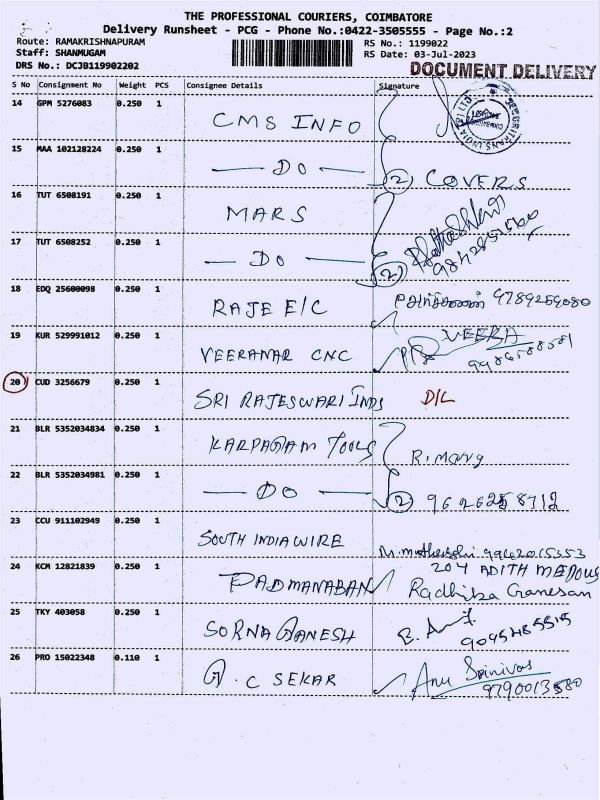 THE PROFESSIONAL COURIERS, COIMBATORE
Delivery Runsheet - PCG - Phone No.:0422-3505555 - Page No.:2
Route: RAMAKRISHNAPURAM
RS No.: 1199022
Staff: SHANMUGAM
RS Date: 03-Jul-2023
DRS No.: DCJB119902202
DOCUMENT DELIVERY
S No Consignment No Weight PCS Consignee Details Signature
14 GPM 5276083 0.250 1 CMS INFO
15 MAA 102128224 0.250 1 — DO — 2 COVERS
16 TUT 6508191 0.250 1 MARS
17 TUT 6508252 0.250 1 — DO — 2
18 EDQ 25600098 0.250 1 RAJE E/C 9789259080
19 KUR 529991012 0.250 1 VEERAMAR CNC VEERA
20 CUD 3256679 0.250 1 SRI RAJESWARI INDS D/L
21 BLR 5352034834 0.250 1 KARPAGAM TOOLS R. Many
22 BLR 5352034981 0.250 1 — DO — 2 9626258712
23 CCU 911102949 0.250 1 SOUTH INDIA WIRE 9962015353
24 KCM 12821839 0.250 1 PADMANABAN 204 ADITH
Radhika Ganesan
25 TKY 403058 0.250 1 SORNA GANESH
26 PRO 15022348 0.110 1 G.C SEKAR Anu Srinivas
9790013580